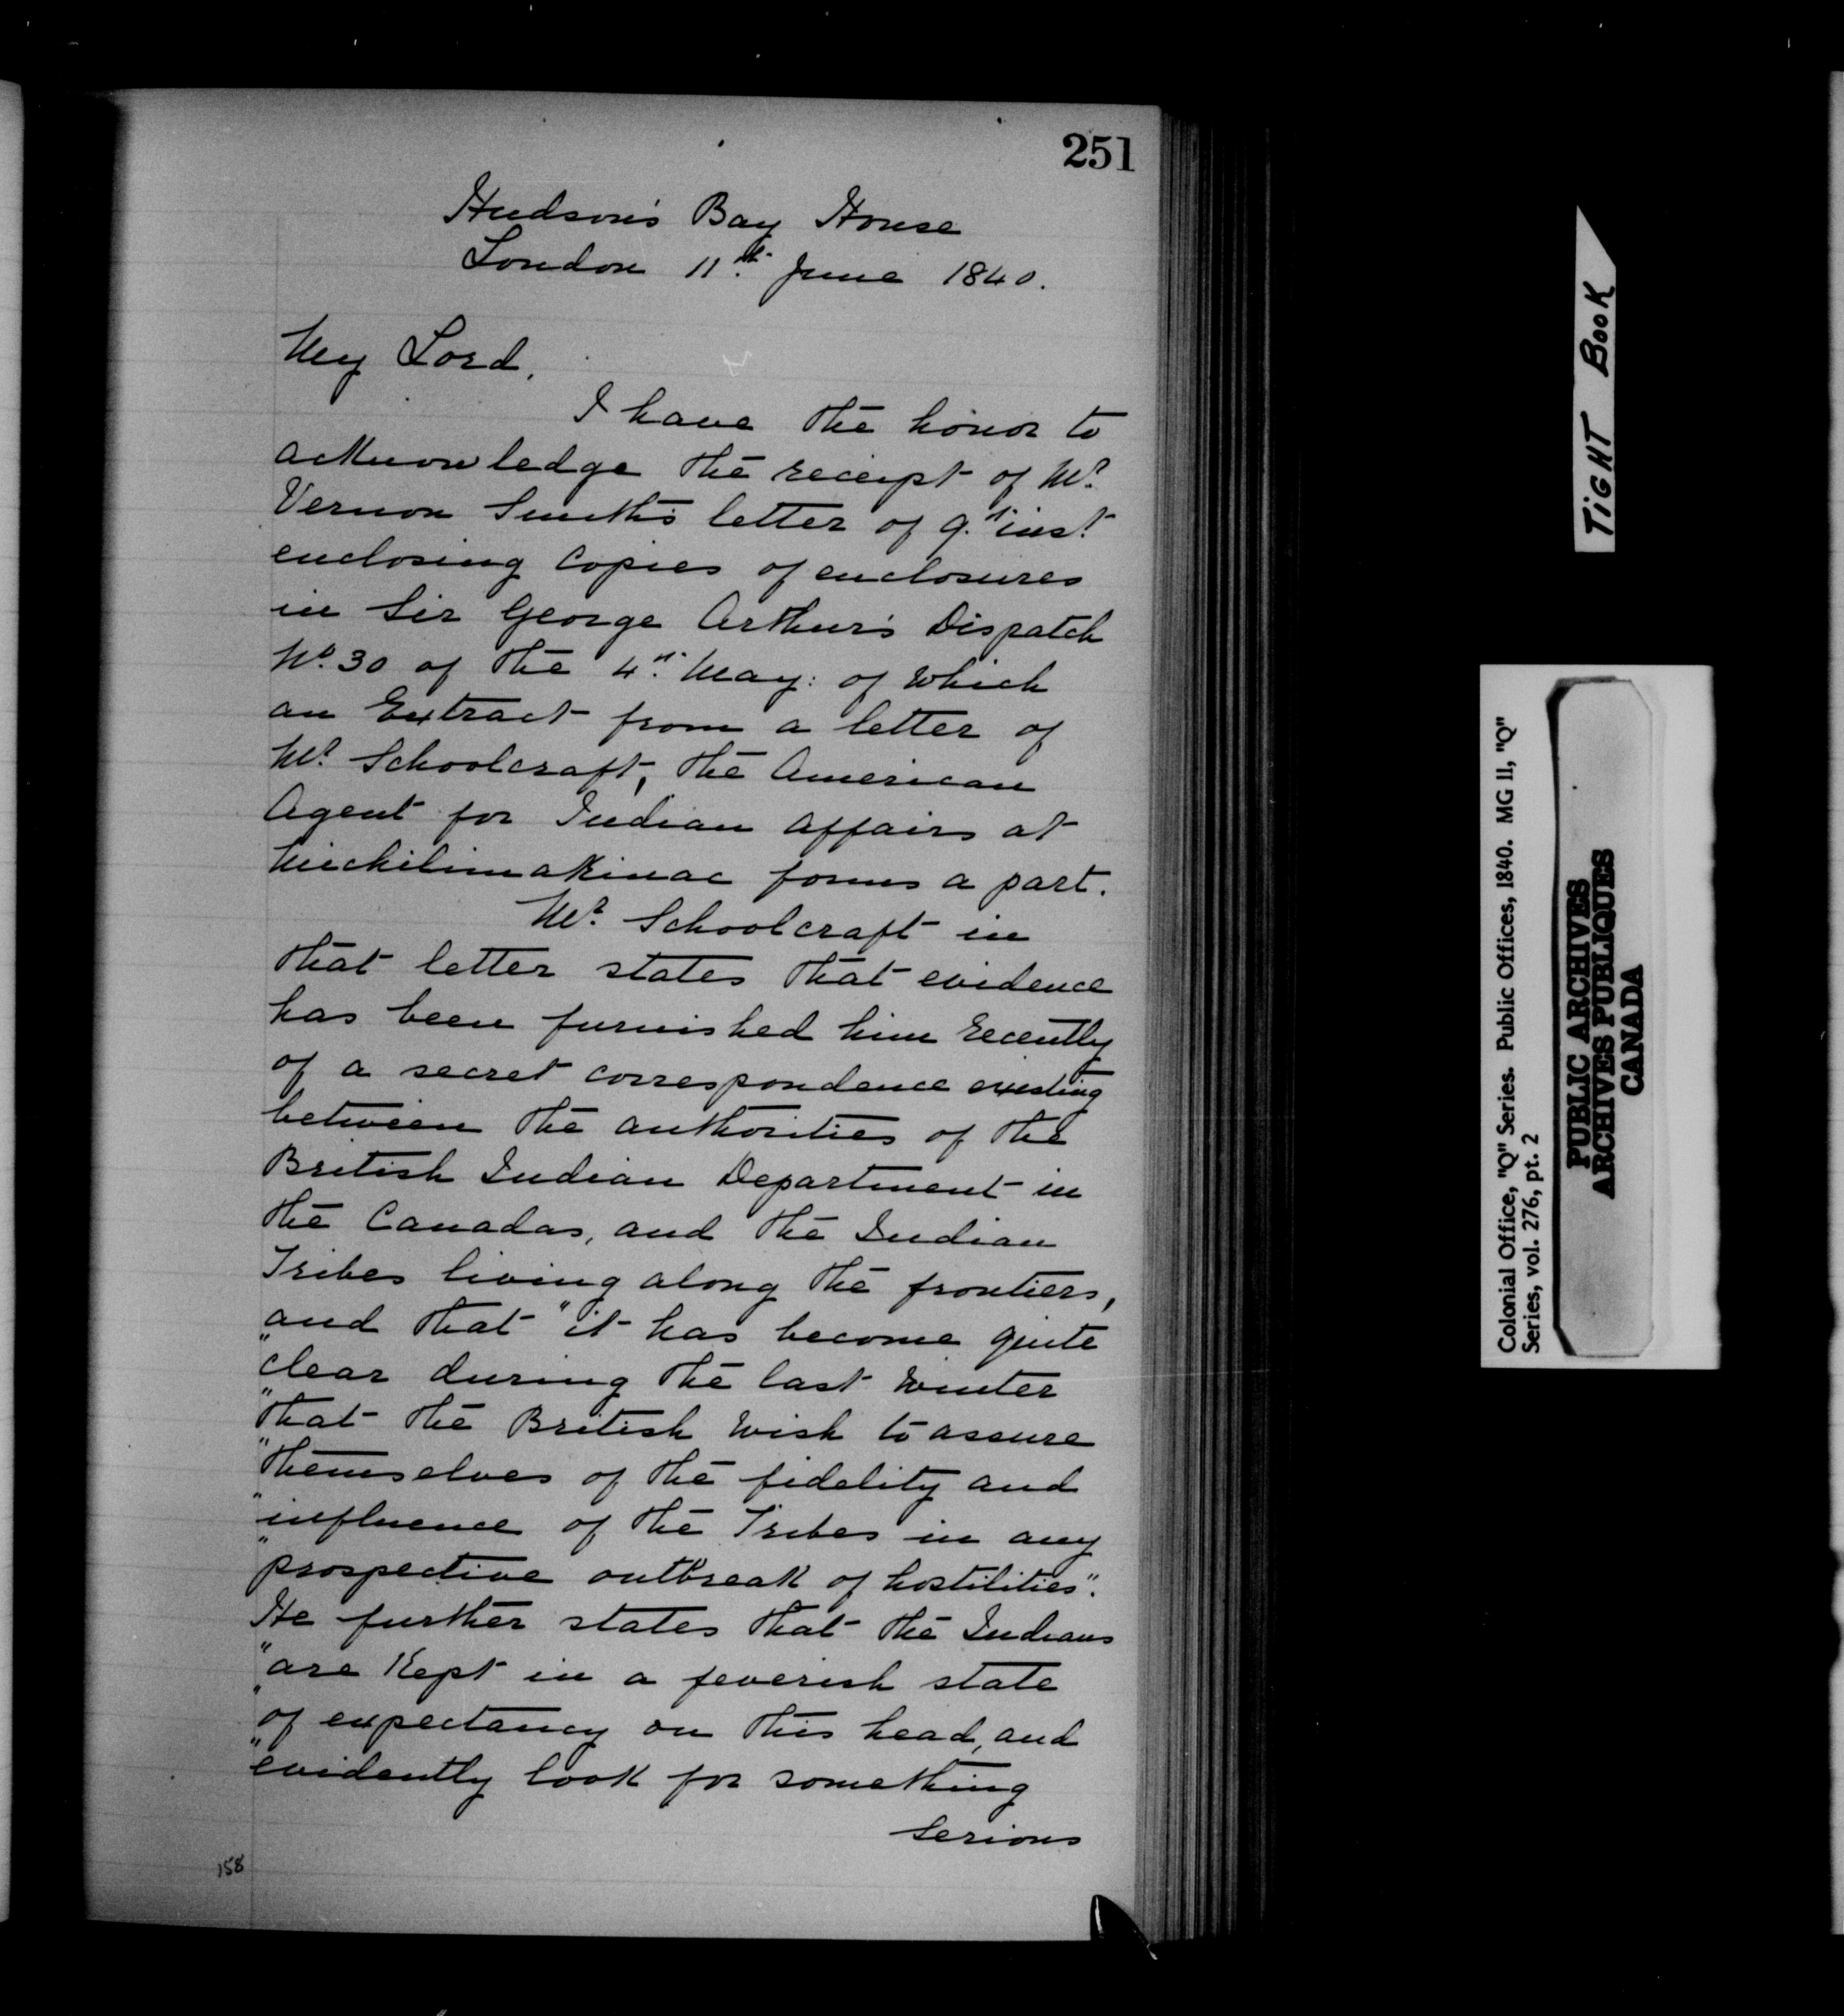 251
Hudson's Bay House
London 11th June 1840.
My Lord,
I have the honor to
acknowledge the receipt of Mr.
Vernon Smith's letter of 9th inst.
enclosing copies of enclosures
in Sir George Arthur's Dispatch
No. 30 of the 4th May: of which
an Extract from a letter of
Mr. Schoolcraft, the American
Agent for Indian affairs at
Michilimakinac forms a part.
Mr. Schoolcraft in
that letter states that evidence
has been furnished him recently
of a secret correspondence existing
between the authorities of the
British Indian Department in
the Canadas, and the Indian
Tribes living along the frontiers,
and that "it has become quite
"clear during the last winter
"that the British wish to assure
"themselves of the fidelity and
"influence of the Tribes in any
"prospective outbreak of hostilities".
He further states that the Indians
"are kept in a feverish state
"of expectancy on this head, and
"evidently look for something
serious
158
TIGHT BOOK
Colonial Office, "Q" Series. Public Offices, 1840. MG 11, "Q"
Series, vol. 276, pt. 2
PUBLIC ARCHIVES
ARCHIVES PUBLIQUES
CANADA